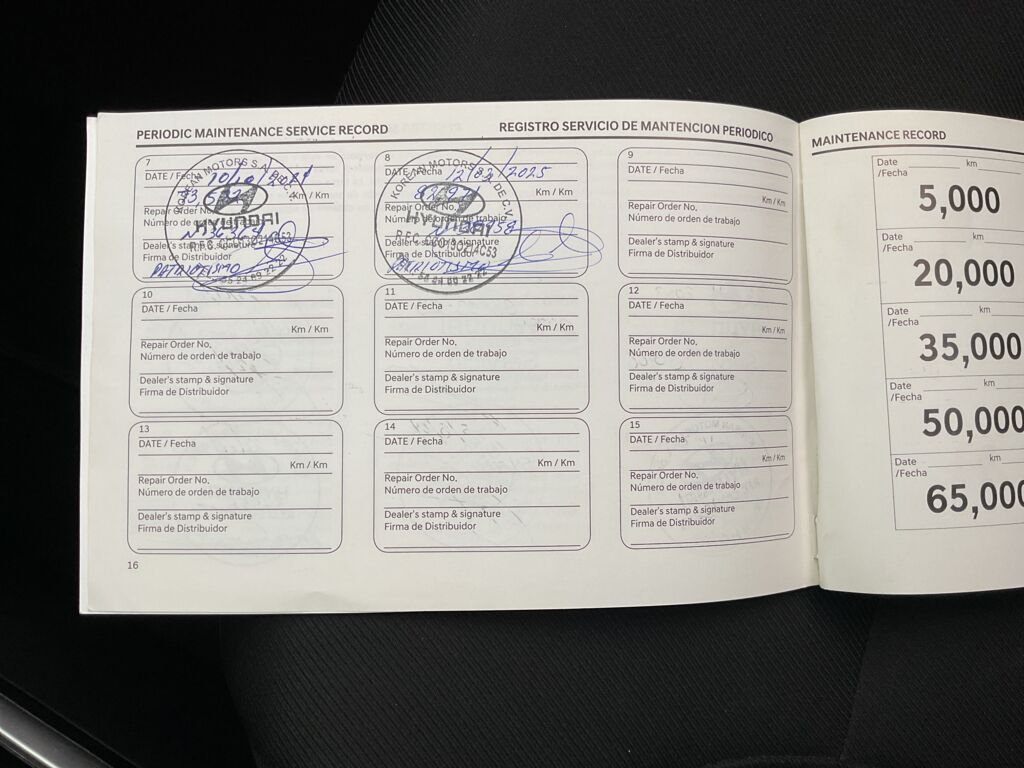 PERIODIC MAINTENANCE SERVICE RECORD
REGISTRO SERVICIO DE MANTENCION PERIODICO
7
DATE / Fecha
Km / Km
Repair Order No.
Número de orden de trabajo
Dealer's stamp & signature
Firma de Distribuidor
HYUNDAI
PATRIOTISMO
55 24 89 22 22
8
DATE / Fecha 12/02/2025
Km / Km
Repair Order No.
Número de orden de trabajo
Dealer's stamp & signature
Firma de Distribuidor
KOREAN MOTORS S.A. DE C.V.
HYUNDAI
PATRIOTISMO
55 24 89 22 22
9
DATE / Fecha
Km / Km
Repair Order No.
Número de orden de trabajo
Dealer's stamp & signature
Firma de Distribuidor
10
DATE / Fecha
Km / Km
Repair Order No.
Número de orden de trabajo
Dealer's stamp & signature
Firma de Distribuidor
11
DATE / Fecha
Km / Km
Repair Order No.
Número de orden de trabajo
Dealer's stamp & signature
Firma de Distribuidor
12
DATE / Fecha
Km / Km
Repair Order No.
Número de orden de trabajo
Dealer's stamp & signature
Firma de Distribuidor
13
DATE / Fecha
Km / Km
Repair Order No.
Número de orden de trabajo
Dealer's stamp & signature
Firma de Distribuidor
14
DATE / Fecha
Km / Km
Repair Order No.
Número de orden de trabajo
Dealer's stamp & signature
Firma de Distribuidor
15
DATE / Fecha
Km / Km
Repair Order No.
Número de orden de trabajo
Dealer's stamp & signature
Firma de Distribuidor
16
MAINTENANCE RECORD
Date km
/Fecha
5,000
Date km
/Fecha
20,000
Date km
/Fecha
35,000
Date km
/Fecha
50,000
Date km
/Fecha
65,000